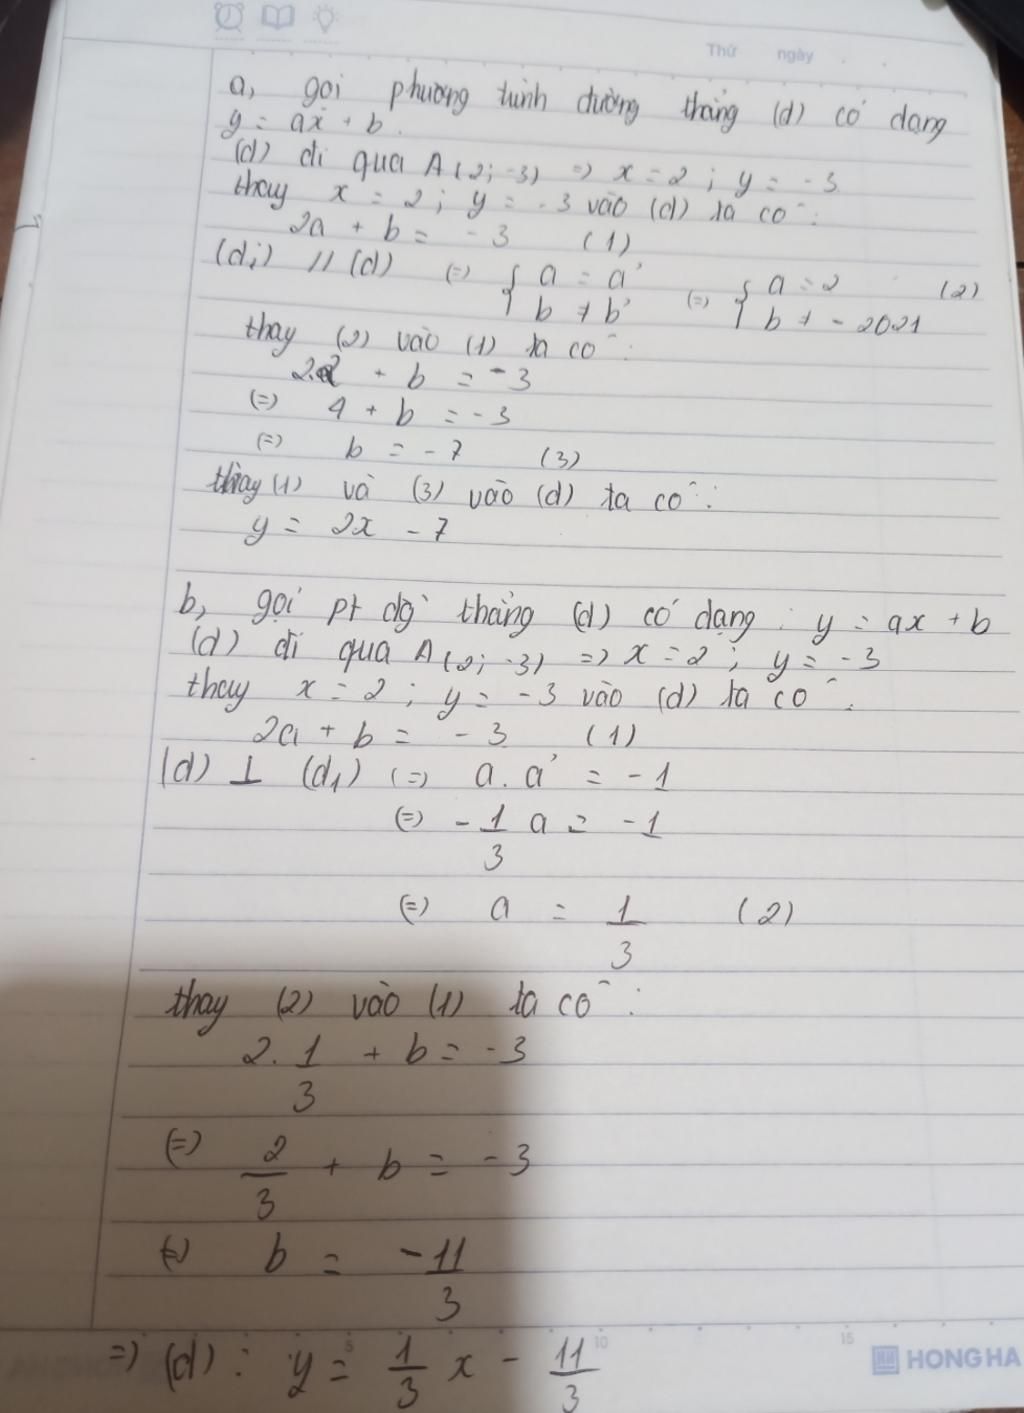 Thứ ngày
a, gọi phương trình đường thẳng (d) có dạng
y = ax + b.
(d) đi qua A(2; -3) => x = 2 ; y = -3
thay x = 2 ; y = -3 vào (d) ta có :
2a + b = -3 (1)
(d₁) // (d) (=) { a = a' (=) { a = 2 (2)
b ≠ b' b ≠ -2021
thay (2) vào (1) ta có :
2.2 + b = -3
(=) 4 + b = -3
(=) b = -7 (3)
thay (1) và (3) vào (d) ta có :
y = 2x - 7
b, gọi pt đg` thẳng (d) có dạng : y = ax + b
(d) đi qua A(2; -3) => x = 2 ; y = -3
thay x = 2 ; y = -3 vào (d) ta có :
2a + b = -3 (1)
(d) ⊥ (d₁) (=) a . a' = -1
(=) -1/3 a = -1
(=) a = 1/3 (2)
thay (2) vào (1) ta có :
2. 1/3 + b = -3
(=) 2/3 + b = -3
(=) b = -11/3
=) (d) : y = 1/3 x - 11/3
10 15
HONG HA